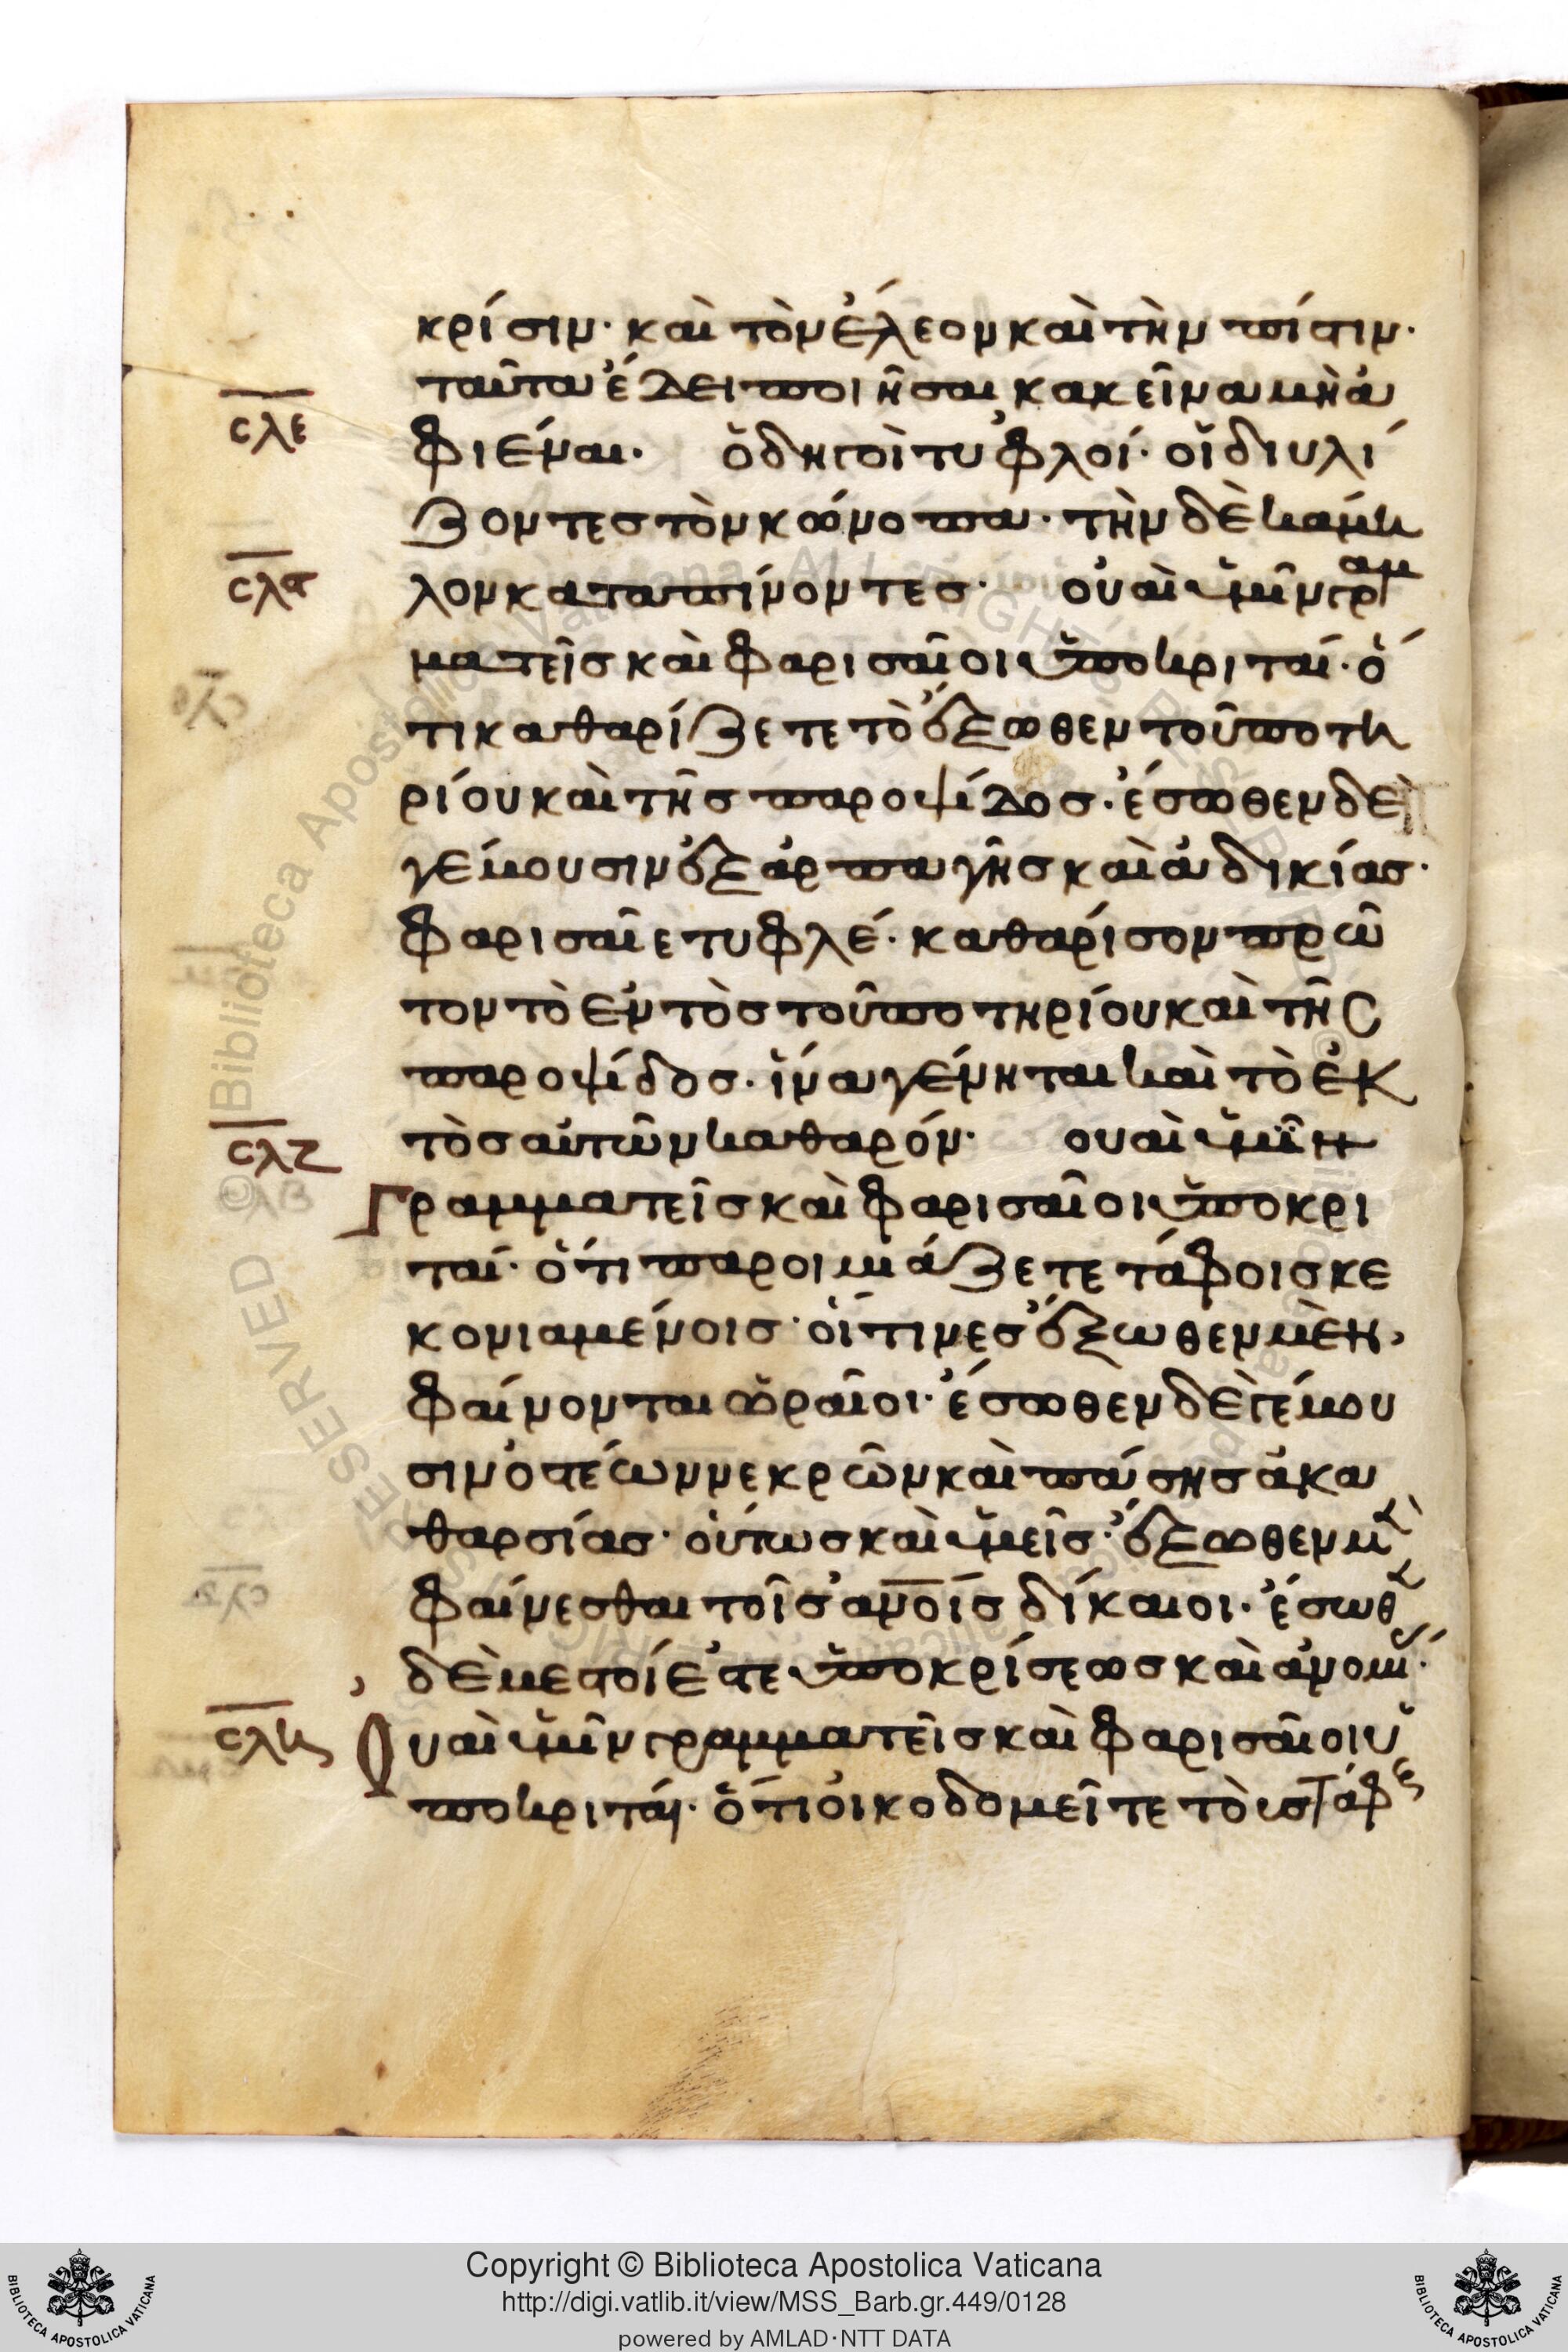 κρίσιν· καὶ τὸν ἔλεον καὶ τὴν πίστιν·
ταῦτα ἔδει ποιῆσαι κακεῖνα μὴ ἀ
σλε
φιέναι. ὁδηγοὶ τυφλοί· οἱ διυλί
ζοντες τὸν κώνοπα· τὴν δὲ κάμη
σλϛ
λον καταπίνοντες· οὐαὶ ὑμῖν γραμ
ματεῖς καὶ φαρισαῖοι ὑποκριταί· ὅ
τι καθαρίζετε τὸ ἔξωθεν τοῦ ποτη
ρίου καὶ τῆς παροψίδος· ἔσωθεν δὲ
γέμουσιν ἐξ ἁρπαγῆς καὶ ἀδικίας·
φαρισαῖε τυφλέ· καθάρισον πρῶ
τον τὸ ἐντὸς τοῦ ποτηρίου καὶ τῆς
παροψίδος· ἵνα γένηται καὶ τὸ ἐκ
σλζ
τὸς αὐτῶν καθαρόν· ουαὶ ὑμῖν
Γραμματεῖς καὶ φαρισαῖοι ὑποκρι
ταί· ὅτι παροιμάζετε τάφοις κε
κονιαμένοις· οἵτινες ἔξωθεν μὲν,
φαίνονται ὡραῖοι· ἔσωθεν δὲ γέμου
σιν ὀστέων νεκρῶν καὶ πάσης ἀκα
θαρσίας· οὕτως καὶ ὑμεῖς· ἔξωθεν μὲν
φαίνεσθαι τοῖς ἀνοῖς δίκαιοι· ἔσωθεν
δὲ μεστοί ἐστε ὑποκρίσεως καὶ ἀνομίας·
σλη
Ουαὶ ὑμῖν γραμματεῖς καὶ φαρισαῖοι ὑ
ποκριταί· ὅτι οἰκοδομεῖτε τοὺς τάφους
Copyright © Biblioteca Apostolica Vaticana
http://digi.vatlib.it/view/MSS_Barb.gr.449/0128
powered by AMLAD·NTT DATA
BIBLIOTECA APOSTOLICA VATICANA
BIBLIOTECA APOSTOLICA VATICANA